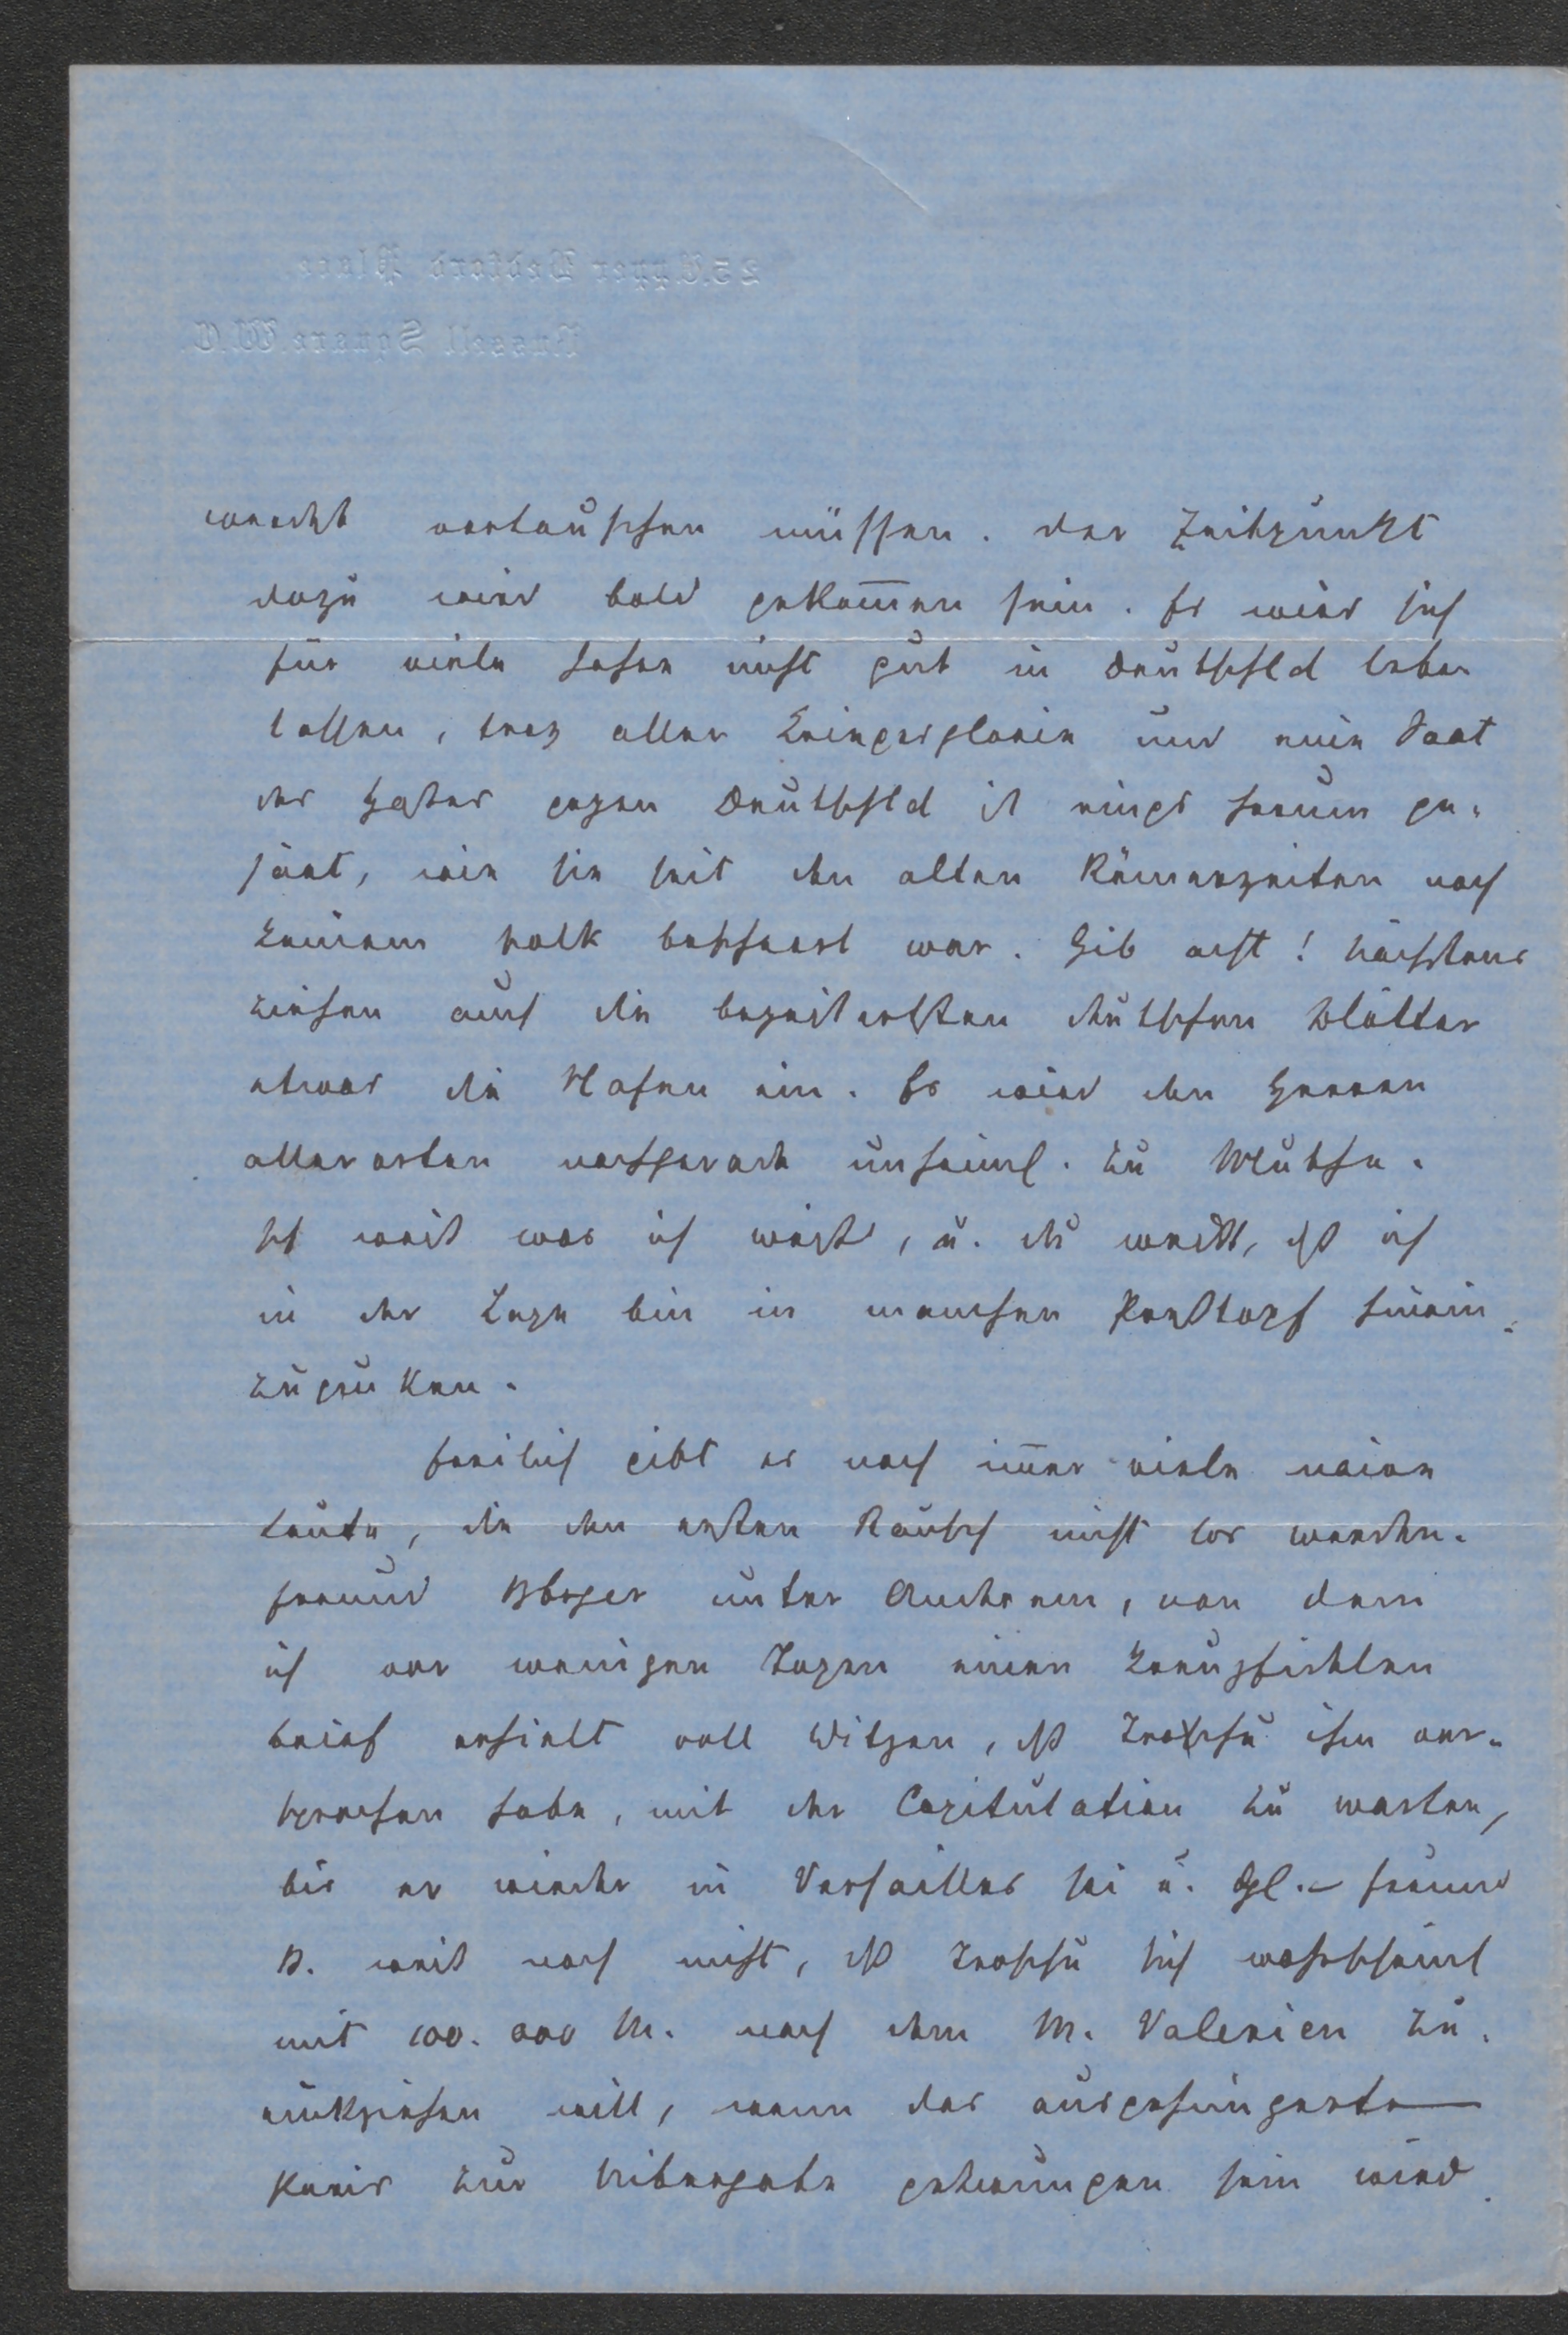 25. Upper Bedford Place
Russell Square. W.C.
werdet vertauschen müssen. Der Zeitpunkt
dazu wird bald gekom̅en sein. Es wird sich
für viele hohen nicht gut in Deutschld leben
lassen, troz aller Kriegesglorie und eine Saat
des Hasses gegen Deutschld ist rings herum ge-
säet, wie sie seit den alten Römerzeiten noch
keinem Volk bescheert war. Gib acht! Nächstens
ziehen auch die begeistertsten deutschen Blätter
etwas die Hafen ein. Es wird den Herren
allerorten nachgerade unheiml. zu Muthe.
Ich weiß was ich weiß, u. du weißt, dß ich
in der Lage bin in manchen Kochtopf hinein-
zuguken.
Freilich gibt es noch im̅er viele naive
Leute, die den ersten Rausch nicht los werden.
Freund Bbger unter Anderem, von dem
ich vor wenigen Tagen einen kreuzfidelen
Brief erhielt voll Witzen, dß Trochu ihm ver-
sprochen habe, mit der Capitulation zu warten,
bis er wieder in Versailles sei u. dgl. – Freund
B. weiß noch nicht, dß Trochu sich wahrscheinl
mit 100.000 M. nach dem M. Valerien zu-
rükziehen will, wenn das ausgehungerte
Paris zur Uibergabe gezwungen sein wird.